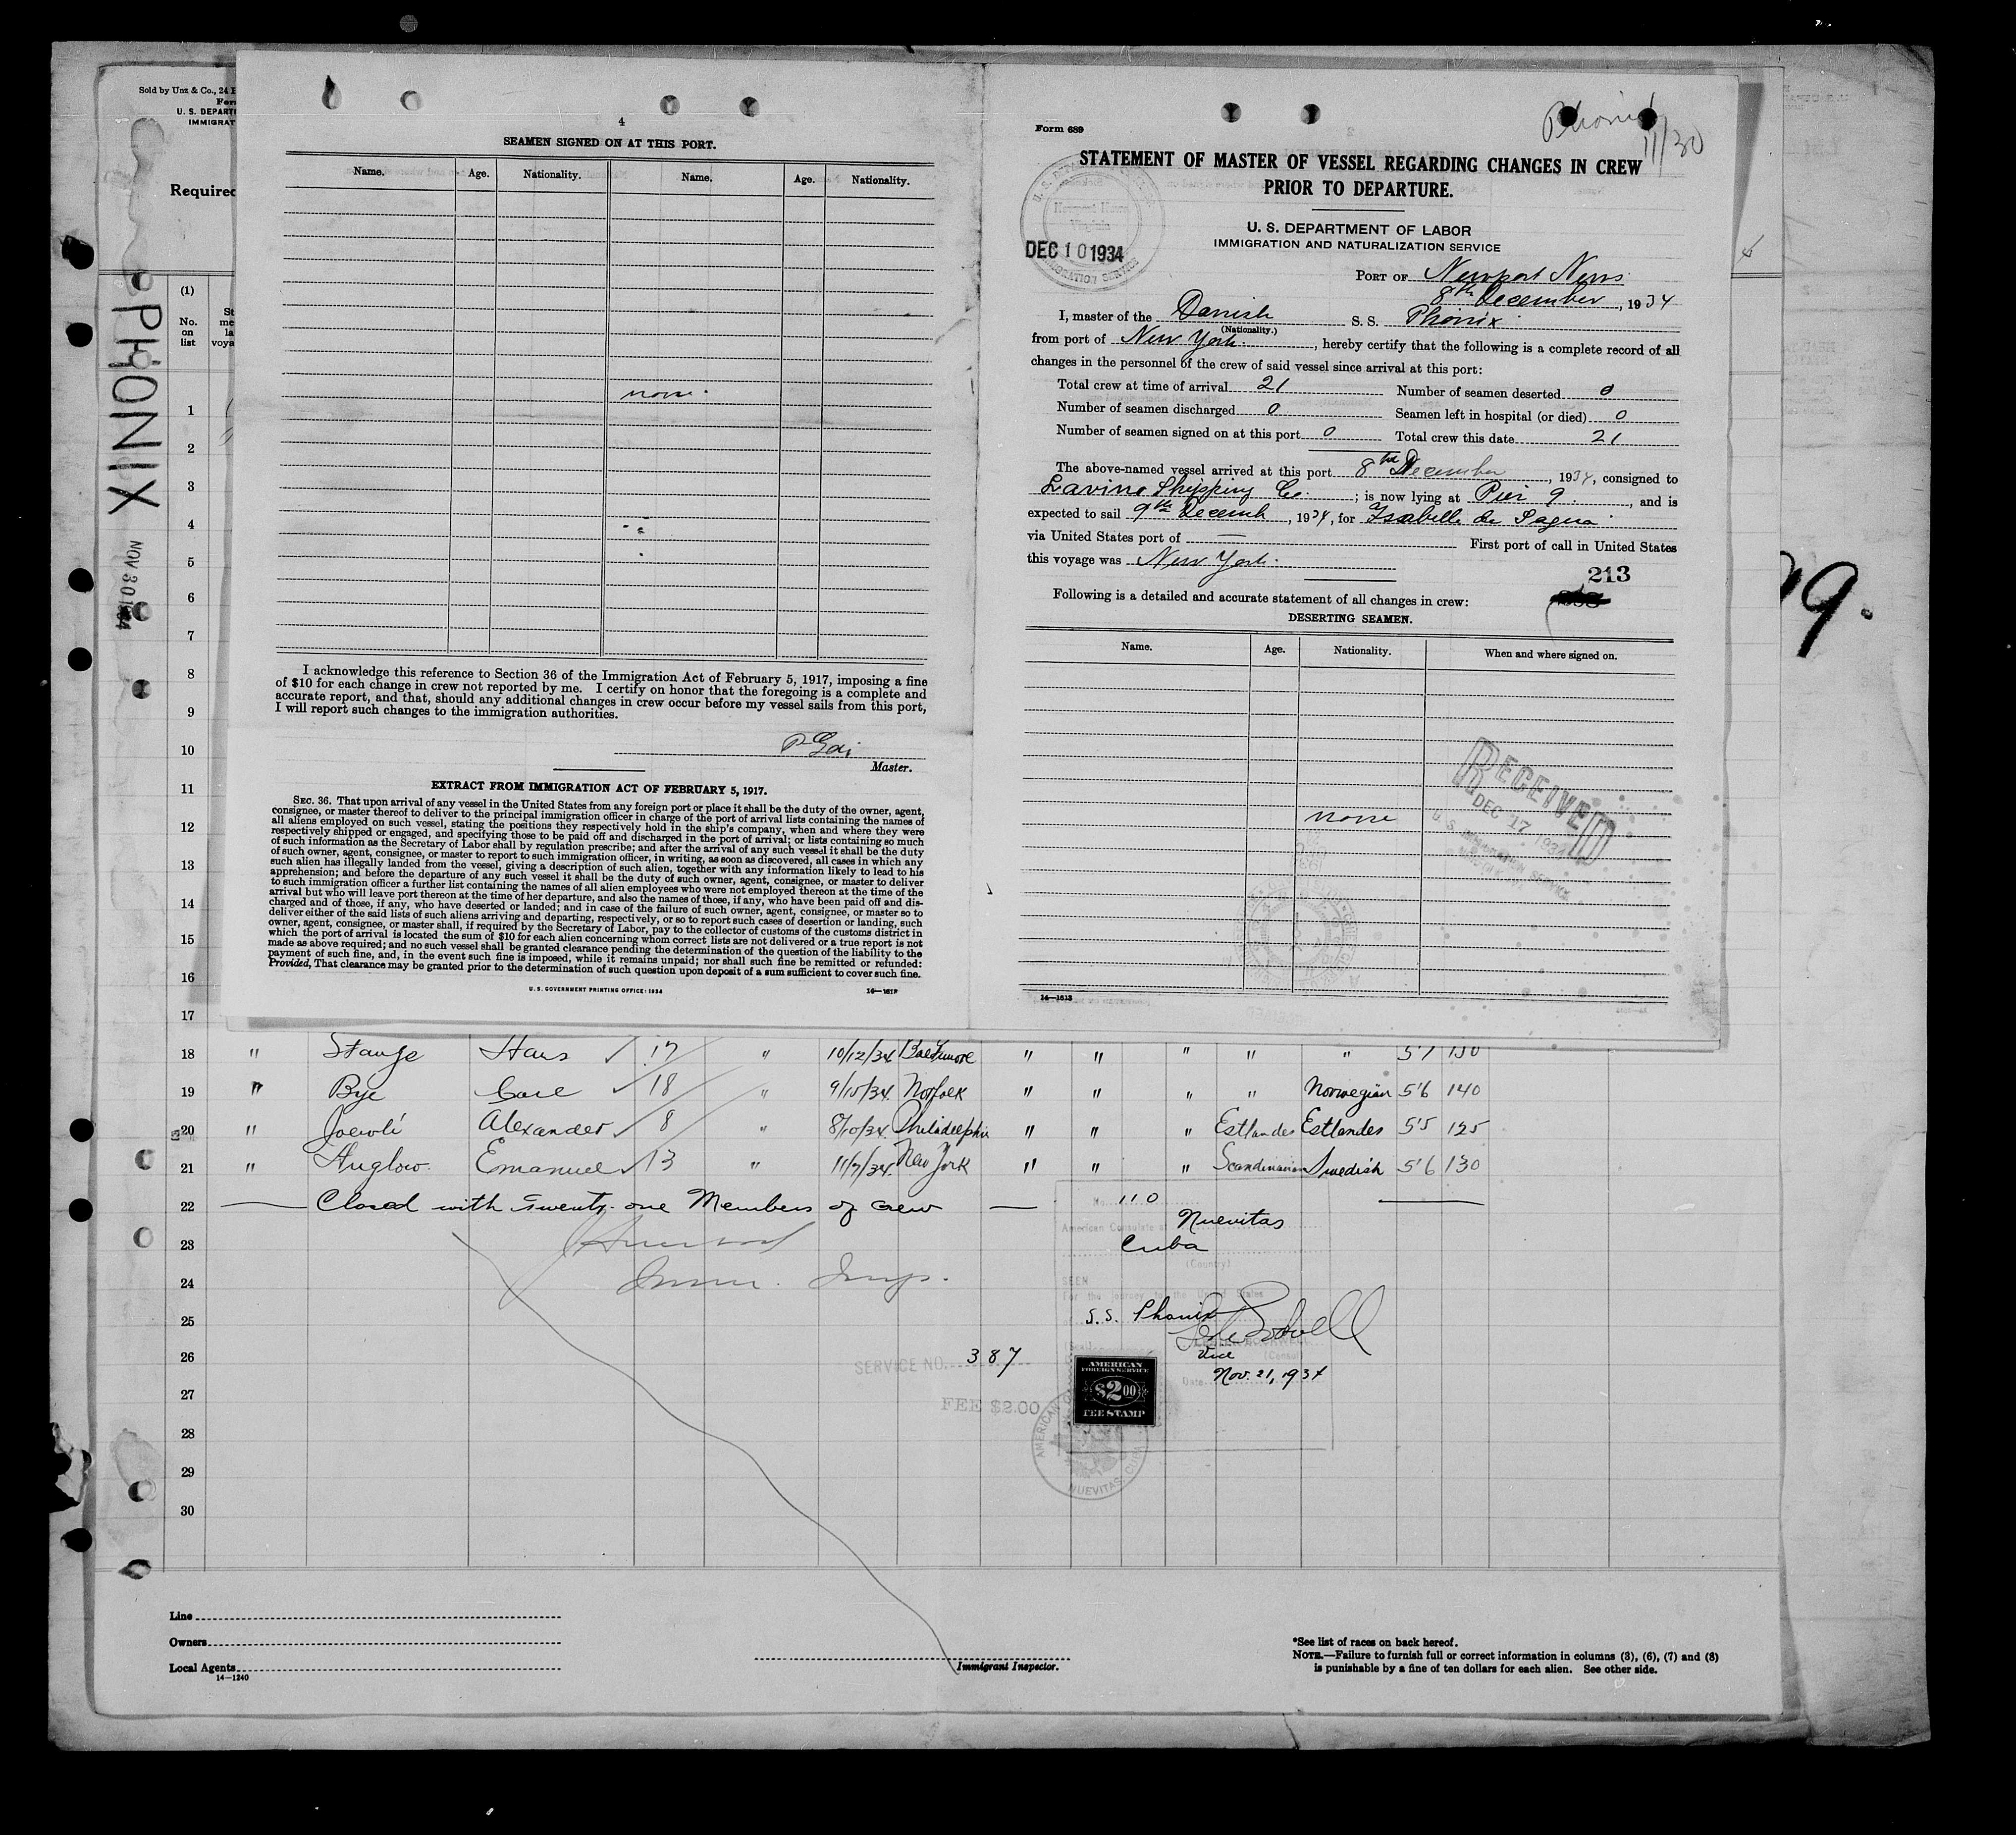 Sold by Unz & Co., 24
U. S. DEPARTM
IMMIGRAT
Required
(1)
No.
on
list
PHONIX
NOV 30 1934
4
SEAMEN SIGNED ON AT THIS PORT.
Name. Age. Nationality. Name. Age. Nationality.
none
I acknowledge this reference to Section 36 of the Immigration Act of February 5, 1917, imposing a fine
of $10 for each change in crew not reported by me. I certify on honor that the foregoing is a complete and
accurate report, and that, should any additional changes in crew occur before my vessel sails from this port,
I will report such changes to the immigration authorities.
Master.
EXTRACT FROM IMMIGRATION ACT OF FEBRUARY 5, 1917.
SEC. 36. That upon arrival of any vessel in the United States from any foreign port or place it shall be the duty of the owner, agent,
consignee, or master thereof to deliver to the principal immigration officer in charge of the port of arrival lists containing the names of
all aliens employed on such vessel, stating the positions they respectively hold in the ship's company, when and where they were
respectively shipped or engaged, and specifying those to be paid off and discharged in the port of arrival; or lists containing so much
of such information as the Secretary of Labor shall by regulation prescribe; and after the arrival of any such vessel it shall be the duty
of such owner, agent, consignee, or master to report to such immigration officer, in writing, as soon as discovered, all cases in which any
such alien has illegally landed from the vessel, giving a description of such alien, together with any information likely to lead to his
apprehension; and before the departure of any such vessel it shall be the duty of such owner, agent, consignee, or master to deliver
to such immigration officer a further list containing the names of all alien employees who were not employed thereon at the time of the
arrival but who will leave port thereon at the time of her departure, and also the names of those, if any, who have been paid off and dis-
charged and of those, if any, who have deserted or landed; and in case of the failure of such owner, agent, consignee, or master so to
deliver either of the said lists of such aliens arriving and departing, respectively, or so to report such cases of desertion or landing, such
owner, agent, consignee, or master shall, if required by the Secretary of Labor, pay to the collector of customs of the customs district in
which the port of arrival is located the sum of $10 for each alien concerning whom correct lists are not delivered or a true report is not
made as above required; and no such vessel shall be granted clearance pending the determination of the question of the liability to the
payment of such fine, and, in the event such fine is imposed, while it remains unpaid; nor shall such fine be remitted or refunded:
Provided, That clearance may be granted prior to the determination of such question upon deposit of a sum sufficient to cover such fine.
U. S. GOVERNMENT PRINTING OFFICE: 1934
Form 689
Phonix
11/30
STATEMENT OF MASTER OF VESSEL REGARDING CHANGES IN CREW
PRIOR TO DEPARTURE.
U. S. DEPARTMENT OF LABOR
IMMIGRATION AND NATURALIZATION SERVICE
DEC 10 1934
PORT OF Newport News
8th December, 1934
I, master of the Danish S. S. Phonix
(Nationality.)
from port of New York, hereby certify that the following is a complete record of all
changes in the personnel of the crew of said vessel since arrival at this port:
Total crew at time of arrival 21 Number of seamen deserted 0
Number of seamen discharged 0 Seamen left in hospital (or died) 0
Number of seamen signed on at this port 0 Total crew this date 21
The above-named vessel arrived at this port 8th December, 1934, consigned to
Lavino Shipping Co. ; is now lying at Pier 9, and is
expected to sail 9th Decemb, 1934, for Isabella de Sagua
via United States port of — First port of call in United States
this voyage was New York.
213
Following is a detailed and accurate statement of all changes in crew:
DESERTING SEAMEN.
Name. Age. Nationality. When and where signed on.
none
RECEIVED
DEC 17 1934
U. S. IMMIGRATION SERVICE
14—1513
9.
1
2
3
4
5
6
7
8
9
10
11
12
13
14
15
16
17
18 " Stange Hans 17 " 10/12/34 Baltimore " " " " " 5'7 150
19 " Bye Carl 18 " 9/15/34 Norfolk " " " " Norwegian 5'6 140
20 " Alexander 8 " 8/10/34 Philadelphia " " " Estlandes Estlandes 5'5 125
21 " Emanuel 13 " 11/7/34 New York " " " Scandinavian Swedish 5'6 130
22 — Closed with twenty-one Members of crew —
23
24 Imm. Insp.
25
26
27
28
29
30
No. 110
American Consulate at Nuevitas
Cuba
(Country)
SEEN
For the journey to the United States
S.S. Phonix
Vice
(Consul)
Date Nov. 21, 1934
SERVICE NO. 387
FEE $2.00
AMERICAN
FOREIGN SERVICE
$2.00
FEE STAMP
NUEVITAS, CUBA
Line
Owners
Local Agents
14—1240
Immigrant Inspector.
*See list of races on back hereof.
NOTE.—Failure to furnish full or correct information in columns (3), (6), (7) and (8)
is punishable by a fine of ten dollars for each alien. See other side.